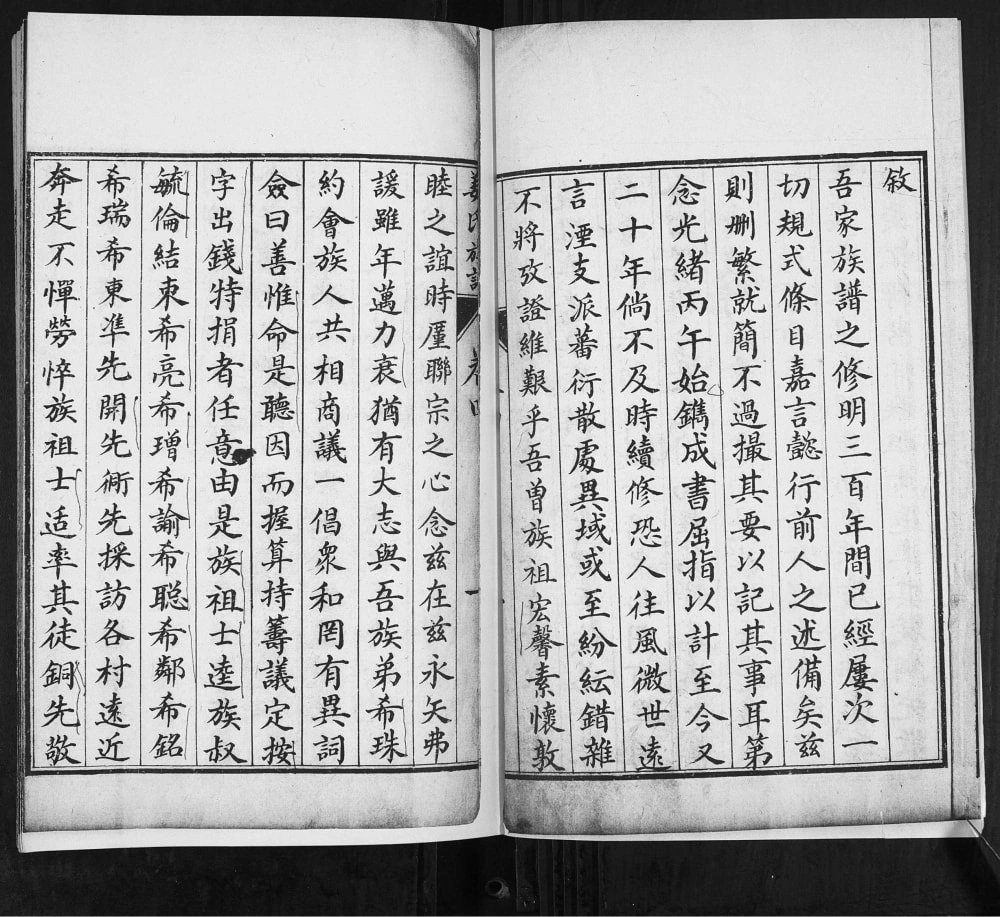 敘
吾家族譜之修明三百年間已經屢次一
切規式條目嘉言懿行前人之述備矣茲
則刪繁就簡不過撮其要以記其事耳第
念光緒丙午始鐫成書屈指以計至今又
二十年倘不及時續修恐人往風微世遠
言湮支派蕃衍散處異域或至紛紜錯雜
不將攷證維艱乎吾曾族祖宏馨素懷敦
姜氏族譜 卷四 一
睦之誼時廑聯宗之心念茲在茲永矢弗
諼雖年邁力衰猶有大志與吾族弟希珠
約會族人共相商議一倡眾和罔有異詞
僉曰善惟命是聽因而握算持籌議定按
字出錢特捐者任意由是族祖士逵族叔
毓倫結束希亮希璔希諭希聰希鄰希銘
希瑞希東準先開先術先採訪各村遠近
奔走不憚勞悴族祖士适率其徒銅先敬